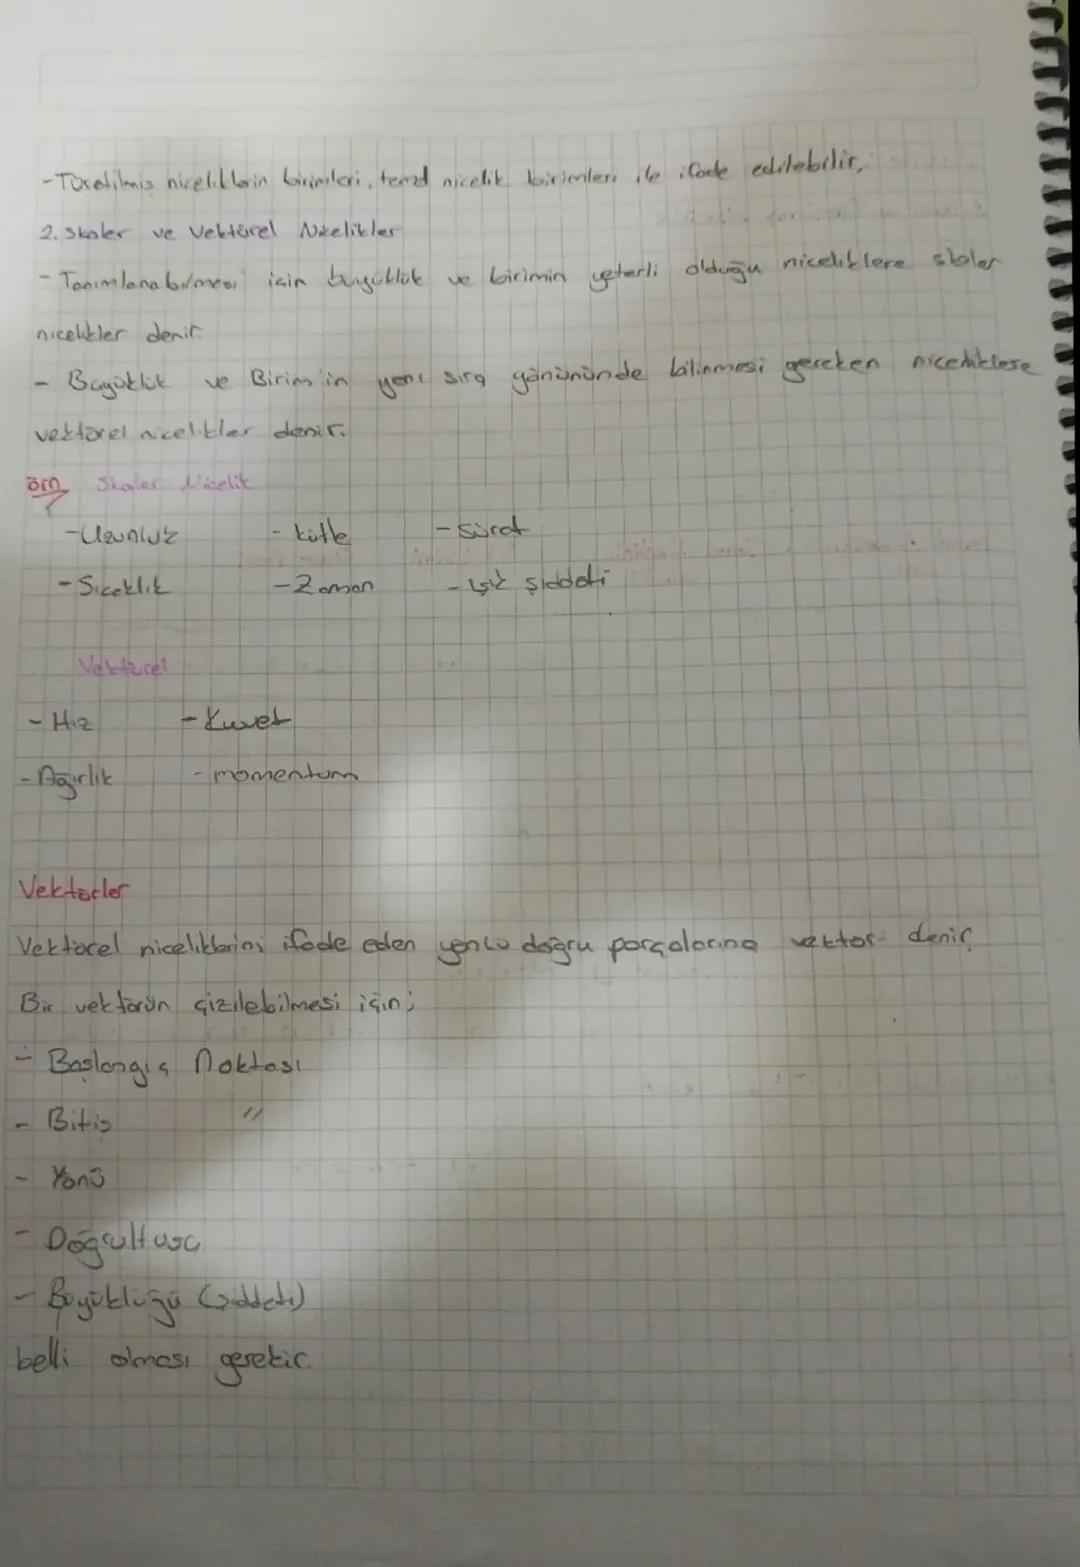 -Türetilmiş niceliklerin birimleri, temel nicelik birimleri ile ifade edilebilir.
2. Skaler ve Vektörel Nicelikler
- Tanımlanabilmesi için büyüklük ve birimin yeterli olduğu niceliklere skaler
nicelikler denir.
- Büyüklük ve Birim'in yanı sıra yönününde bilinmesi gereken niceliklere
vektörel nicelikler denir.
örn Skaler Nicelik
-Uzunluk - kütle - Sürat
- Sıcaklık - Zaman - ışık şiddeti
Vektörel
- Hız - Kuvvet
- Ağırlık - momentum
Vektörler
Vektörel niceliklerini ifade eden yönlü doğru parçalarına vektör denir.
Bir vektörün çizilebilmesi için;
- Başlangıç Noktası
- Bitiş "
- Yönü
- Doğrultusu
- Büyüklüğü (şiddeti)
belli olması gerekir.